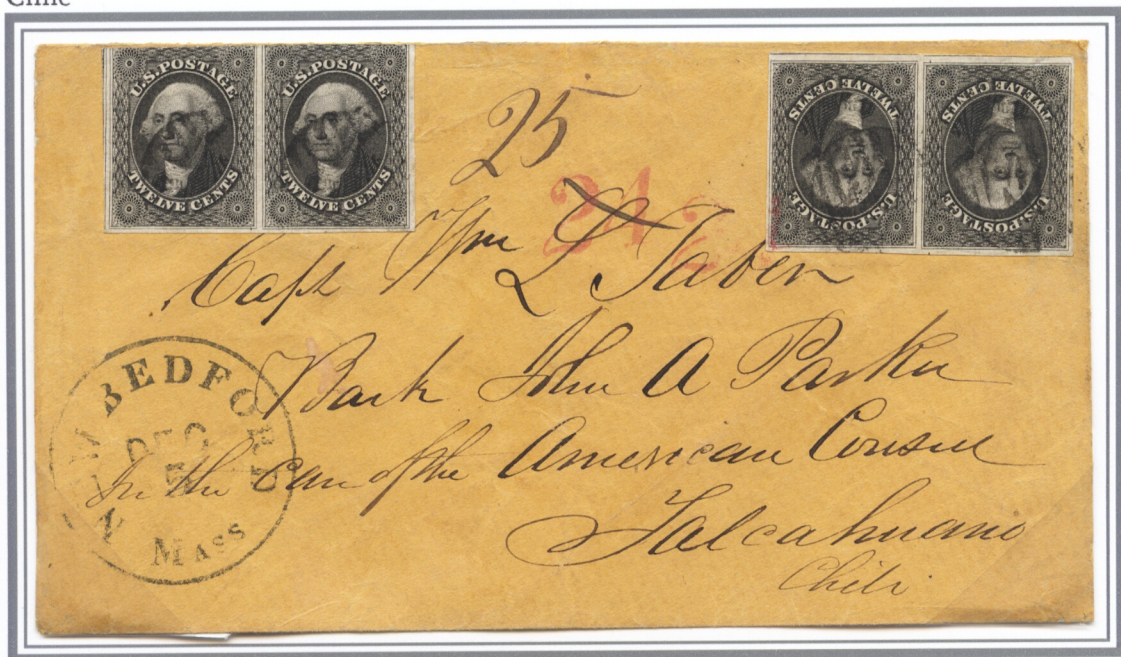 Chile
U.S. POSTAGE
TWELVE CENTS
U.S. POSTAGE
TWELVE CENTS
U.S. POSTAGE
TWELVE CENTS
U.S. POSTAGE
TWELVE CENTS
25
24
Capt Wm L Taber
Bark John A Parker
In the Care of the American Consul
Talcahuano
Chili
NEW BEDFORD
DEC
MASS